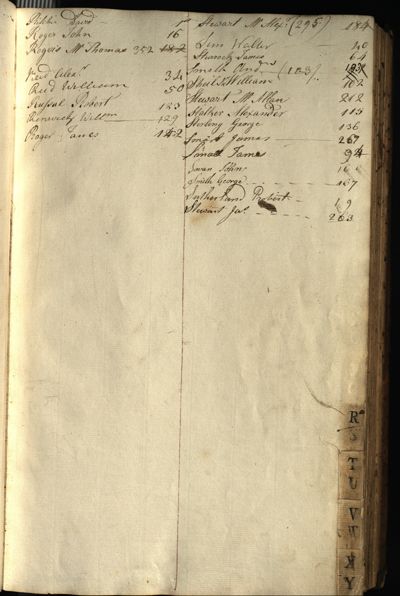 Ritchie David 1
Roger John 16
Rogers Mr Thomas 352
Reid Alexr 34
Reid William 50
Russel Robert 123
Renwick William 129
Roger James 142
Stewart Mr Alexr (295) 184
Sim Walter 40
James 64
Smith (103)
Sheils William 102
Stewart Mr Allan 212
Stalker Alexander 115
Sterling George 136
James 267
James 94
Swan John
Smith George 167
Sutherland Robert
Stewart Jas 203
R
S
T
U
V
W
K
Y